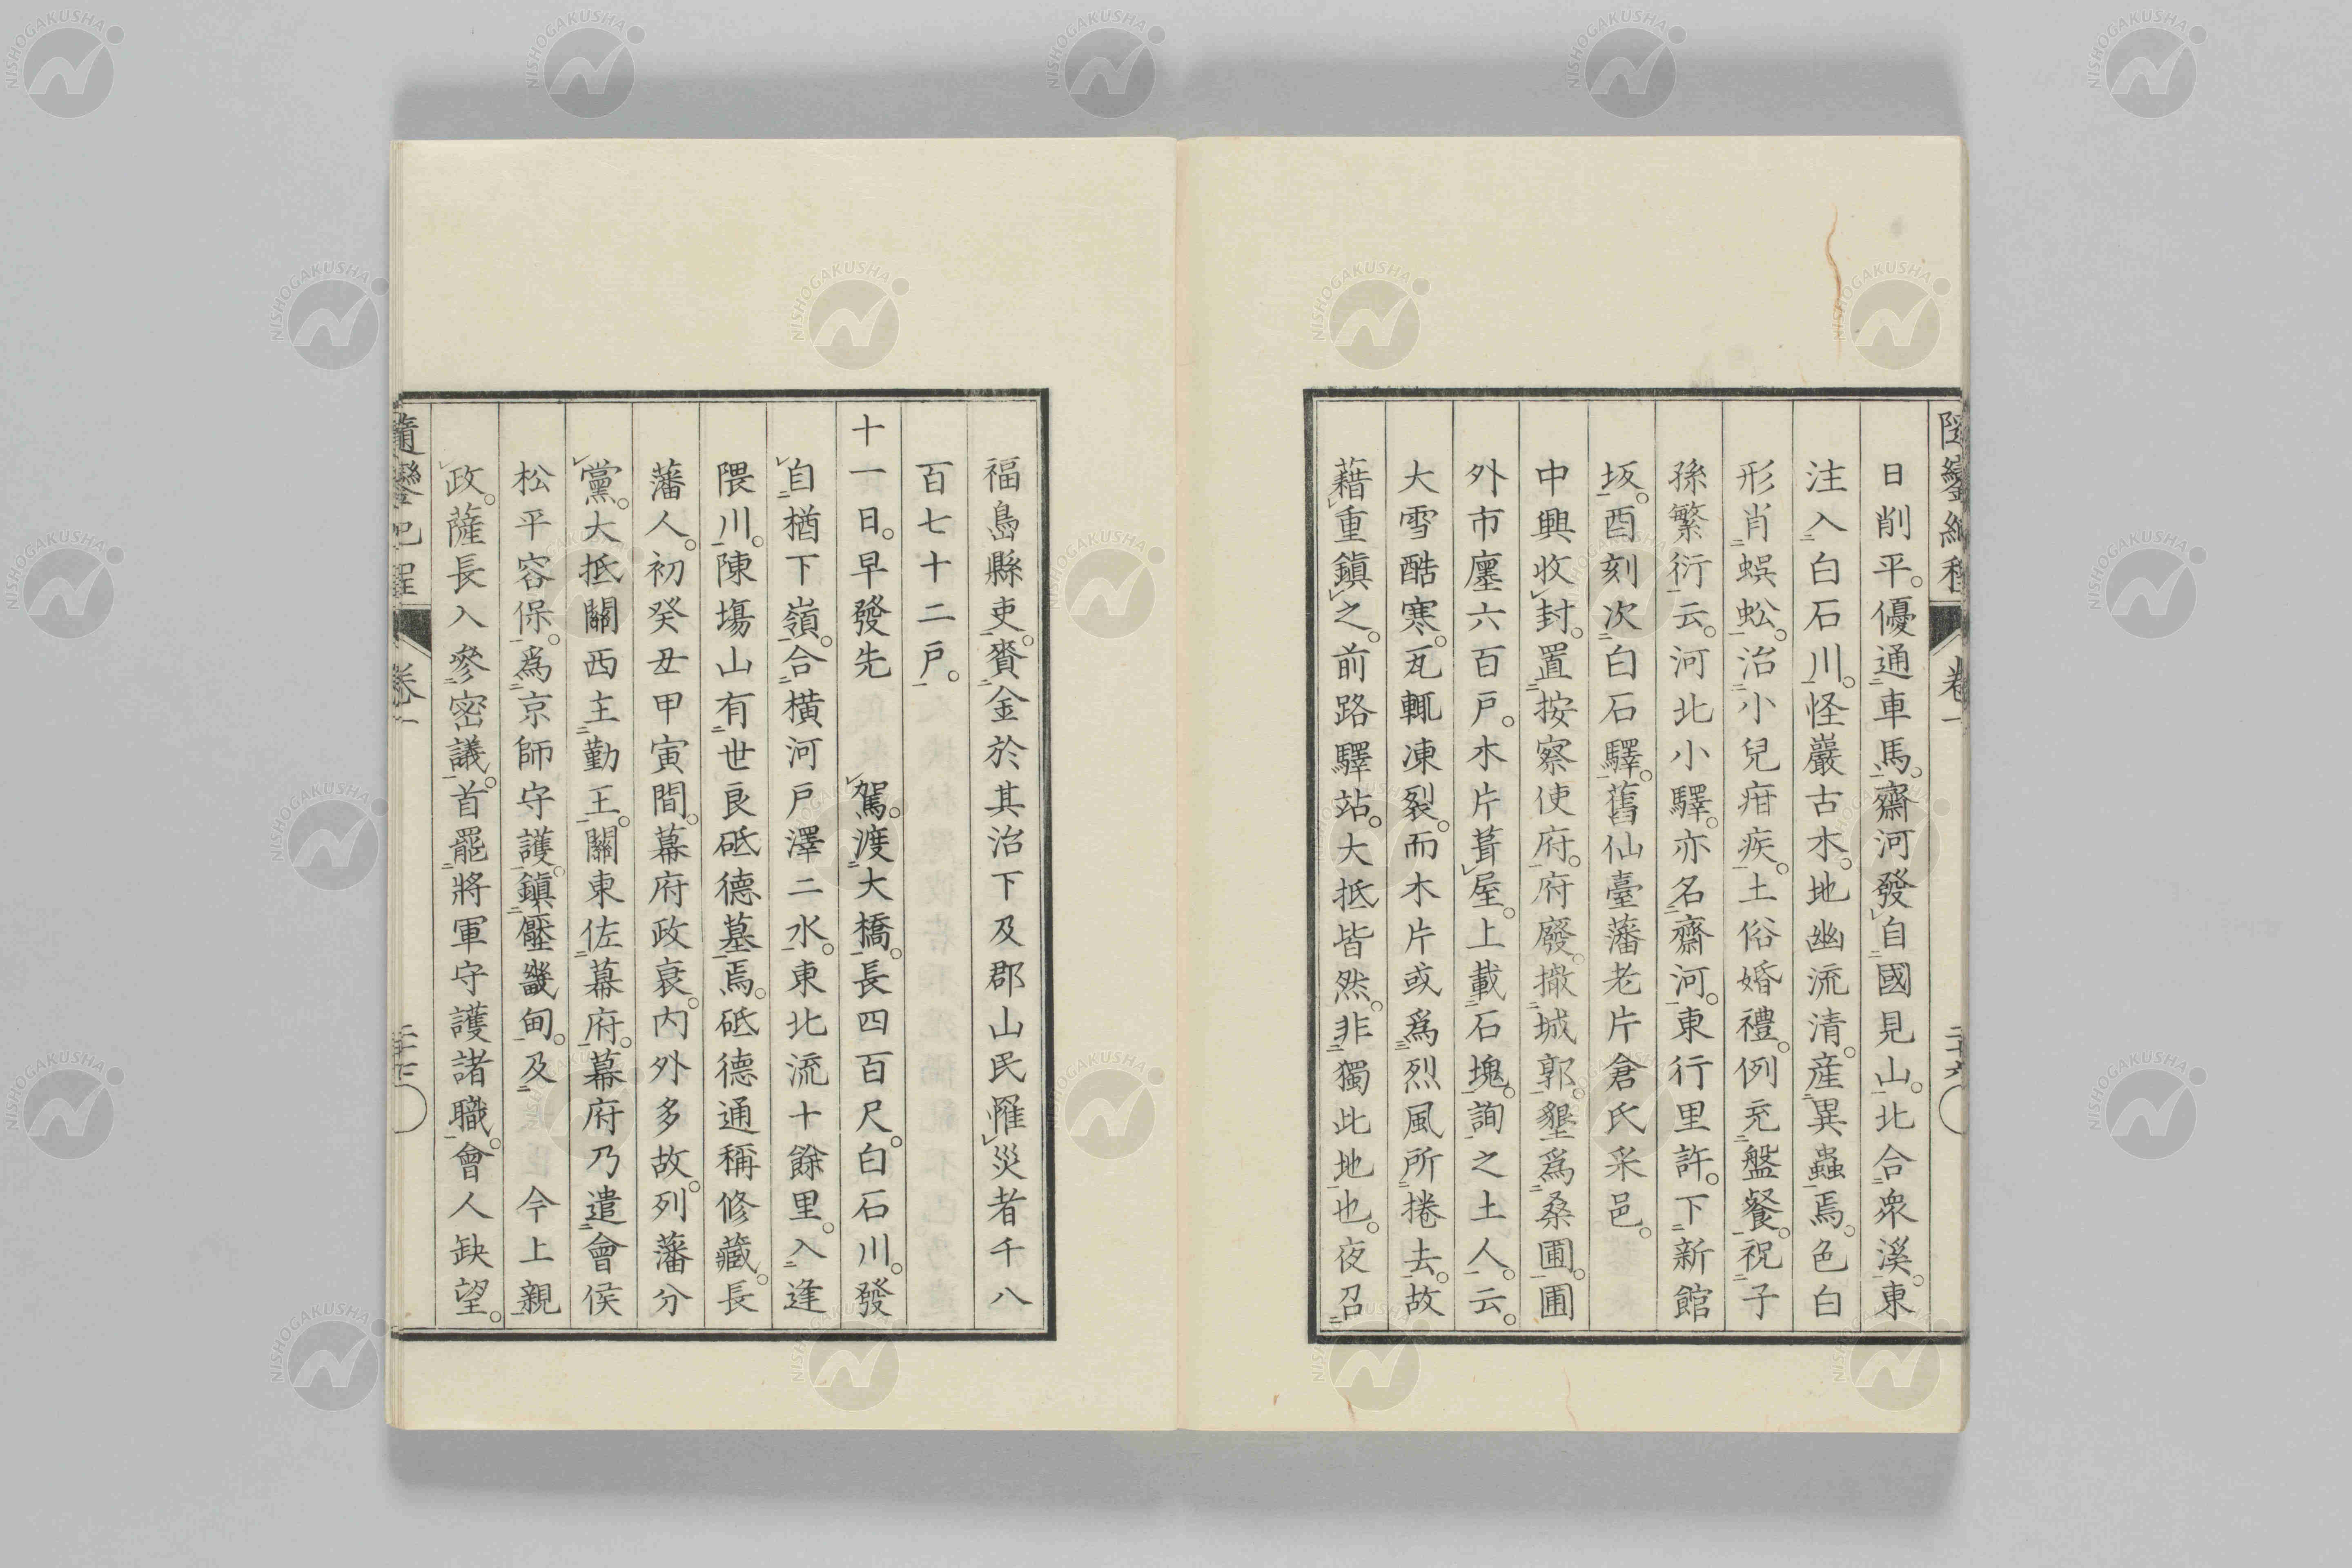 日削平。優通車馬。齋河發自國見山。北合衆溪。東
注入白石川。怪巖古木。地幽流清。産異蟲焉。色白
形肖蜈蚣。治小兒疳疾。土俗婚禮。例充盤餐。祝子
孫繁衍云。河北小驛。亦名齋河。東行里許。下新館
坂。酉刻次白石驛。舊仙臺藩老片倉氏采邑。
中興收封。置按察使府。府廢。撤城郭。墾爲桑圃。圃
外市廛六百戸。木片葺屋。上載石塊。詢之土人。云。
大雪酷寒。瓦輒凍裂。而木片或爲烈風所捲去。故
藉重鎮之。前路驛站。大抵皆然。非獨此地也。夜召
福島縣吏。賚金於其治下及郡山民罹災者千八
百七十二戸。
十一日。早發先駕。渡大橋。長四百尺。白石川。發
自楢下嶺。合横河戸澤二水。東北流十餘里。入逢
隈川。陳塲山有世良砥德墓焉。砥德通稱修藏。長
藩人。初癸丑甲寅間。幕府政衰。内外多故。列藩分
黨。大抵關西主勤王。關東佐幕府。幕府乃遣會侯
松平容保。爲京師守護。鎮壓畿甸。及今上親
政。薩長入參密議。首罷將軍守護諸職。會人缺望。
隨鑾紀程 卷一
NISHOGAKUSHA